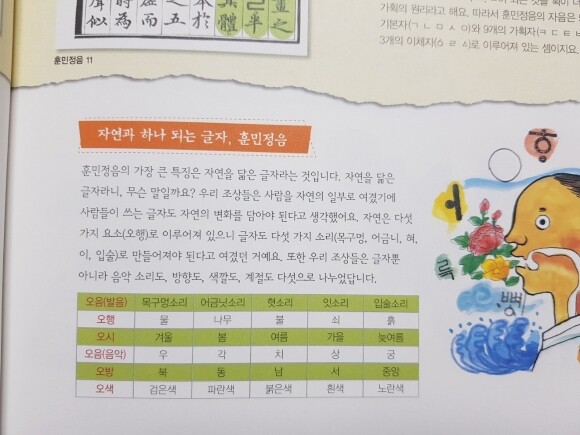 畫之
半
之五
本於
異體
時為
虛而
聲似
훈민정음 11
가획의 원리라고 해요. 따라서 훈민정음의 자음은
기본자(ㄱ ㄴ ㅁ ㅅ ㅇ)와 9개의 가획자(ㅋ ㄷ ㅌ ㅂ
3개의 이체자(ㆁ ㄹ ㅿ)로 이루어져 있는 셈이지요.
자연과 하나 되는 글자, 훈민정음
훈민정음의 가장 큰 특징은 자연을 닮은 글자라는 것입니다. 자연을 닮은
글자라니, 무슨 말일까요? 우리 조상들은 사람을 자연의 일부로 여겼기에
사람들이 쓰는 글자도 자연의 변화를 담아야 된다고 생각했어요. 자연은 다섯
가지 요소(오행)로 이루어져 있으니 글자도 다섯 가지 소리(목구멍, 어금니, 혀,
이, 입술)로 만들어져야 된다고 여겼던 거예요. 또한 우리 조상들은 글자뿐
아니라 음악 소리도, 방향도, 색깔도, 계절도 다섯으로 나누었답니다.
오음(발음) 목구멍소리 어금닛소리 혓소리 잇소리 입술소리
오행 물 나무 불 쇠 흙
오시 겨울 봄 여름 가을 늦여름
오음(음악) 우 각 치 상 궁
오방 북 동 남 서 중앙
오색 검은색 파란색 붉은색 흰색 노란색
흥
어
륵
뼝